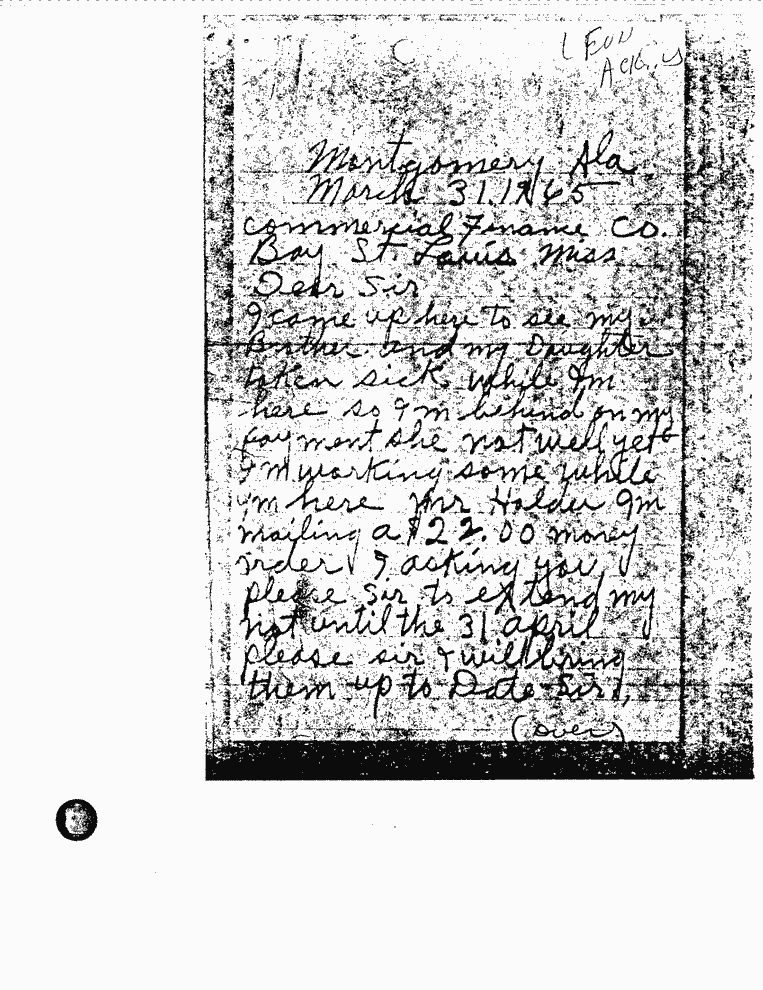 LEON
Montgomery Ala
March 31.1965
commercial Finance Co.
Bay St. Louis Miss
Dear Sir
I came up here to see my
Brother and my Daughter
taken sick while Im
here so I m behind on my
payment she not well yet
I'm working some while
I'm here Mr Holder Im
mailing a $22.00 money
order I asking you
please Sir to extend my
not until the 31 april
please sir I will bring
them up to Date Sir,
(over)